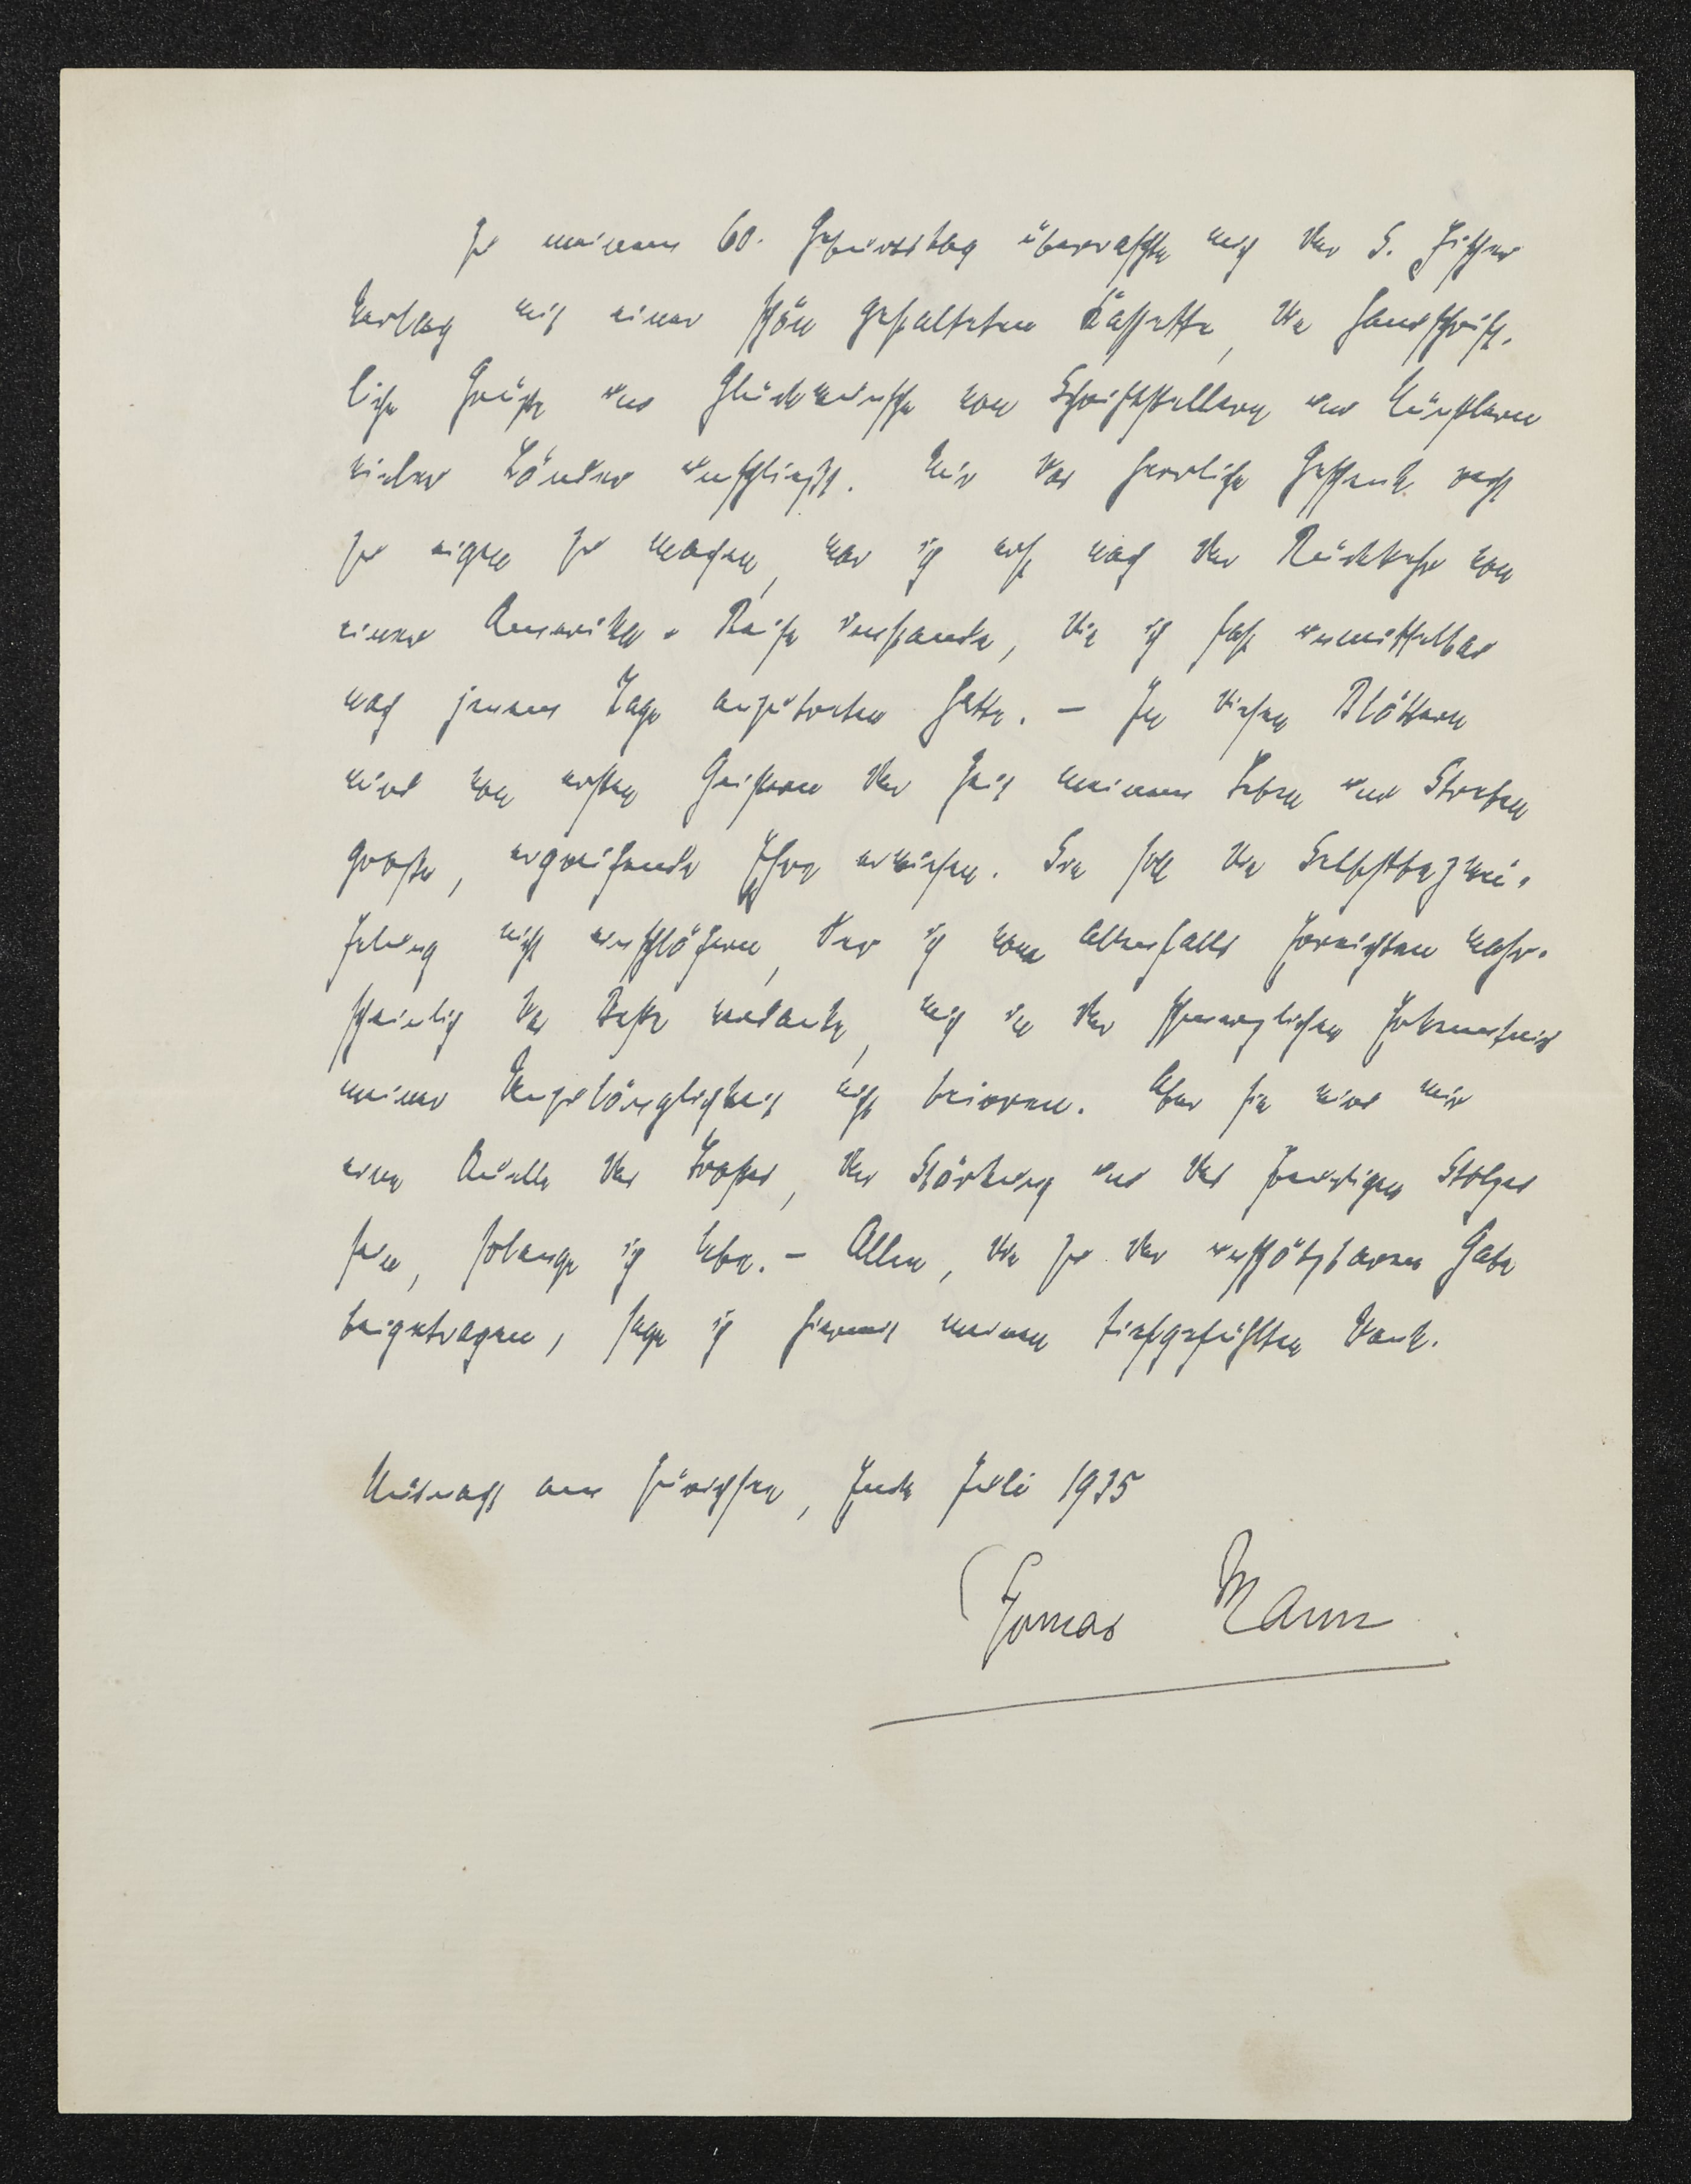 Zu meinem 60. Geburtstag überraschte mich der S. Fischer
Verlag mit einer schön gestalteten Kassette, die handschrift-
liche Grüße und Glückwünsche von Schriftstellern und Künstlern
vieler Länder umschließt. Mir das herrliche Geschenk recht
zu eigen zu machen, war ich erst nach der Rückkehr von
einer Amerika-Reise imstande, die ich fast unmittelbar
nach jenem Tage anzutreten hatte. – In diesen Blättern
wird von ersten Geistern der Zeit meinem Leben und Streben
große, ergreifende Ehre erwiesen. Sie soll die Selbstbezwei-
felung nicht einschläfern, der ich vom allenfalls Erreichten wahr-
scheinlich das Beste verdanke, mich in der schmerzlichen Erkenntnis
meiner Unzulänglichkeit nicht beirren. Aber sie wird mir
eine Quelle des Trostes, der Stärkung und des freudigen Stolzes
sein, solange ich lebe. – Allen, die zu der unschätzbaren Gabe
beigetragen, sage ich hiermit meinen tiefgefühlten Dank.
Küsnacht am Zürichsee, Ende Juli 1935
Thomas Mann.